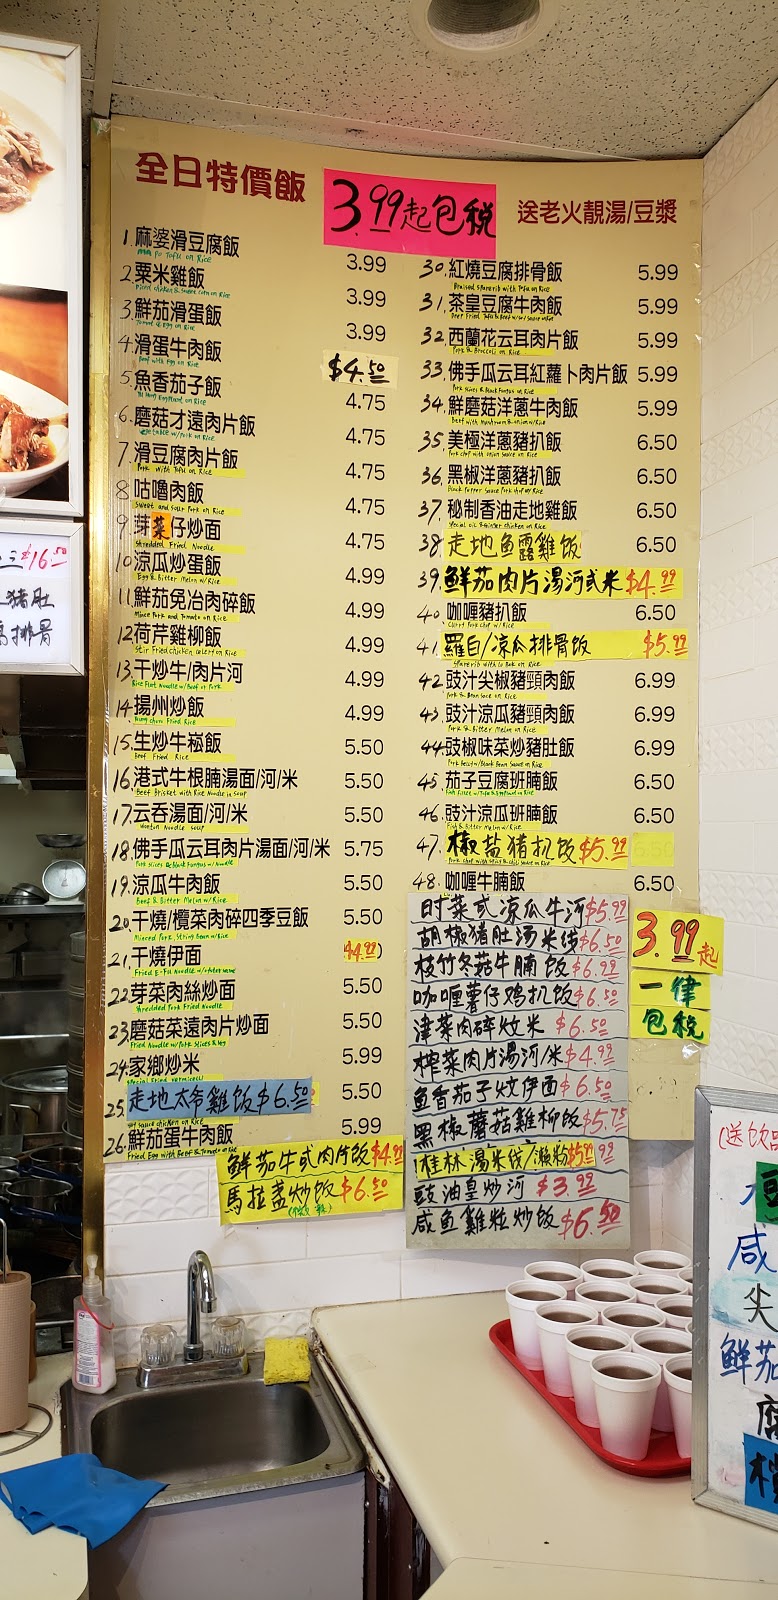 全日特價飯
3.99起包税
送老火靚湯/豆漿
1.麻婆滑豆腐飯 3.99
Ma po Tofu on Rice
2.粟米雞飯 3.99
Diced chicken & Sweet corn on Rice
3.鮮茄滑蛋飯 3.99
Tomato & Egg on Rice
4.滑蛋牛肉飯 $4.50
Beef with Egg on Rice
5.魚香茄子飯 4.75
Eggplant on Rice
6.磨菇才遠肉片飯 4.75
Vegetable w/Pork on Rice
7.滑豆腐肉片飯 4.75
Pork with Tofu on Rice
8.咕嚕肉飯 4.75
Sweet and sour Pork on Rice
9.芽菜仔炒面 4.75
Shredded Fried Noodle
10.涼瓜炒蛋飯 4.99
Egg & Bitter Melon w/Rice
11.鮮茄免冶肉碎飯 4.99
Mince Pork and Tomato on Rice
12.荷芹雞柳飯 4.99
Stir Fried chicken celery on Rice
13.干炒牛/肉片河 4.99
Rice Flat Noodle w/Beef or Pork
14.揚州炒飯 4.99
Yung chow Fried Rice
15.生炒牛崧飯 5.50
Beef Fried Rice
16.港式牛根腩湯面/河/米 5.50
Beef Brisket with Rice Noodle in Soup
17.云吞湯面/河/米 5.50
Wonton Noodle soup
18.佛手瓜云耳肉片湯面/河/米 5.75
Pork slices & black Fungus w/Noodle
19.涼瓜牛肉飯 5.50
Beef & Bitter Melon w/Rice
20.干燒/欖菜肉碎四季豆飯 5.50
Minced Pork, String Bean w/Rice
21.干燒伊面 $4.99
Fried E-Fu Noodle
22.芽菜肉絲炒面 5.50
Shredded Pork Fried Noodle
23.磨菇菜遠肉片炒面 5.50
Fried Noodle w/Pork Slices & Veg
24.家鄉炒米 5.99
Special Fried vermicelli
25.走地太爷雞饭$6.50 5.50
Soy sauce chicken on Rice
26.鮮茄蛋牛肉飯 5.99
Fried Egg with Beef & Tomato on Rice
鮮茄牛或肉片飯$4.99
馬拉盞炒饭$6.50
30.紅燒豆腐排骨飯 5.99
Braised Sparerib with Tofu on Rice
31.茶皇豆腐牛肉飯 5.99
32.西蘭花云耳肉片飯 5.99
Pork & Broccoli on Rice
33.佛手瓜云耳紅蘿卜肉片飯 5.99
Pork slices & Black Fungus on Rice
34.鮮磨菇洋蔥牛肉飯 5.99
Beef with Mushroom & onion w/Rice
35.美極洋蔥豬扒飯 6.50
Pork chop with onion Sauce on Rice
36.黑椒洋蔥豬扒飯 6.50
Black Pepper Sauce Pork chop w/Rice
37.秘制香油走地雞飯 6.50
38.走地鱼露雞饭 6.50
39.鮮茄肉片湯河或米$4.99
40.咖喱豬扒飯 6.50
Curry Pork chop w/Rice
41.羅白/凉瓜排骨饭 $5.99
Sparerib with Lo Bok on Rice
42.豉汁尖椒豬頸肉飯 6.99
43.豉汁涼瓜豬頸肉飯 6.99
Pork & Bitter Melon on Rice
44.豉椒味菜炒豬肚飯 6.99
45.茄子豆腐班腩飯 6.50
Fish Fillet w/Tofu & Eggplant on Rice
46.豉汁涼瓜班腩飯 6.50
Fish & Bitter Melon w/Rice
47.椒盐猪扒饭$5.99 6.50
48.咖喱牛腩飯 6.50
时菜或凉瓜牛河$5.99
胡椒猪肚汤米线$6.50
枝竹冬菇牛腩饭$6.99
咖喱薯仔鸡扒饭$6.50
津菜肉碎炆米 $6.50
榨菜肉片湯河/米$4.99
鱼香茄子炆伊面$6.50
黑椒蘑菇雞柳饭$5.75
桂林湯米线/濑粉$5.99
豉油皇炒河 $3.99
咸鱼雞粒炒飯$6.50
3.99起
一律
包税
三$16.50
猪肚
排骨
(送饮品
咸
尖
鮮茄
腐